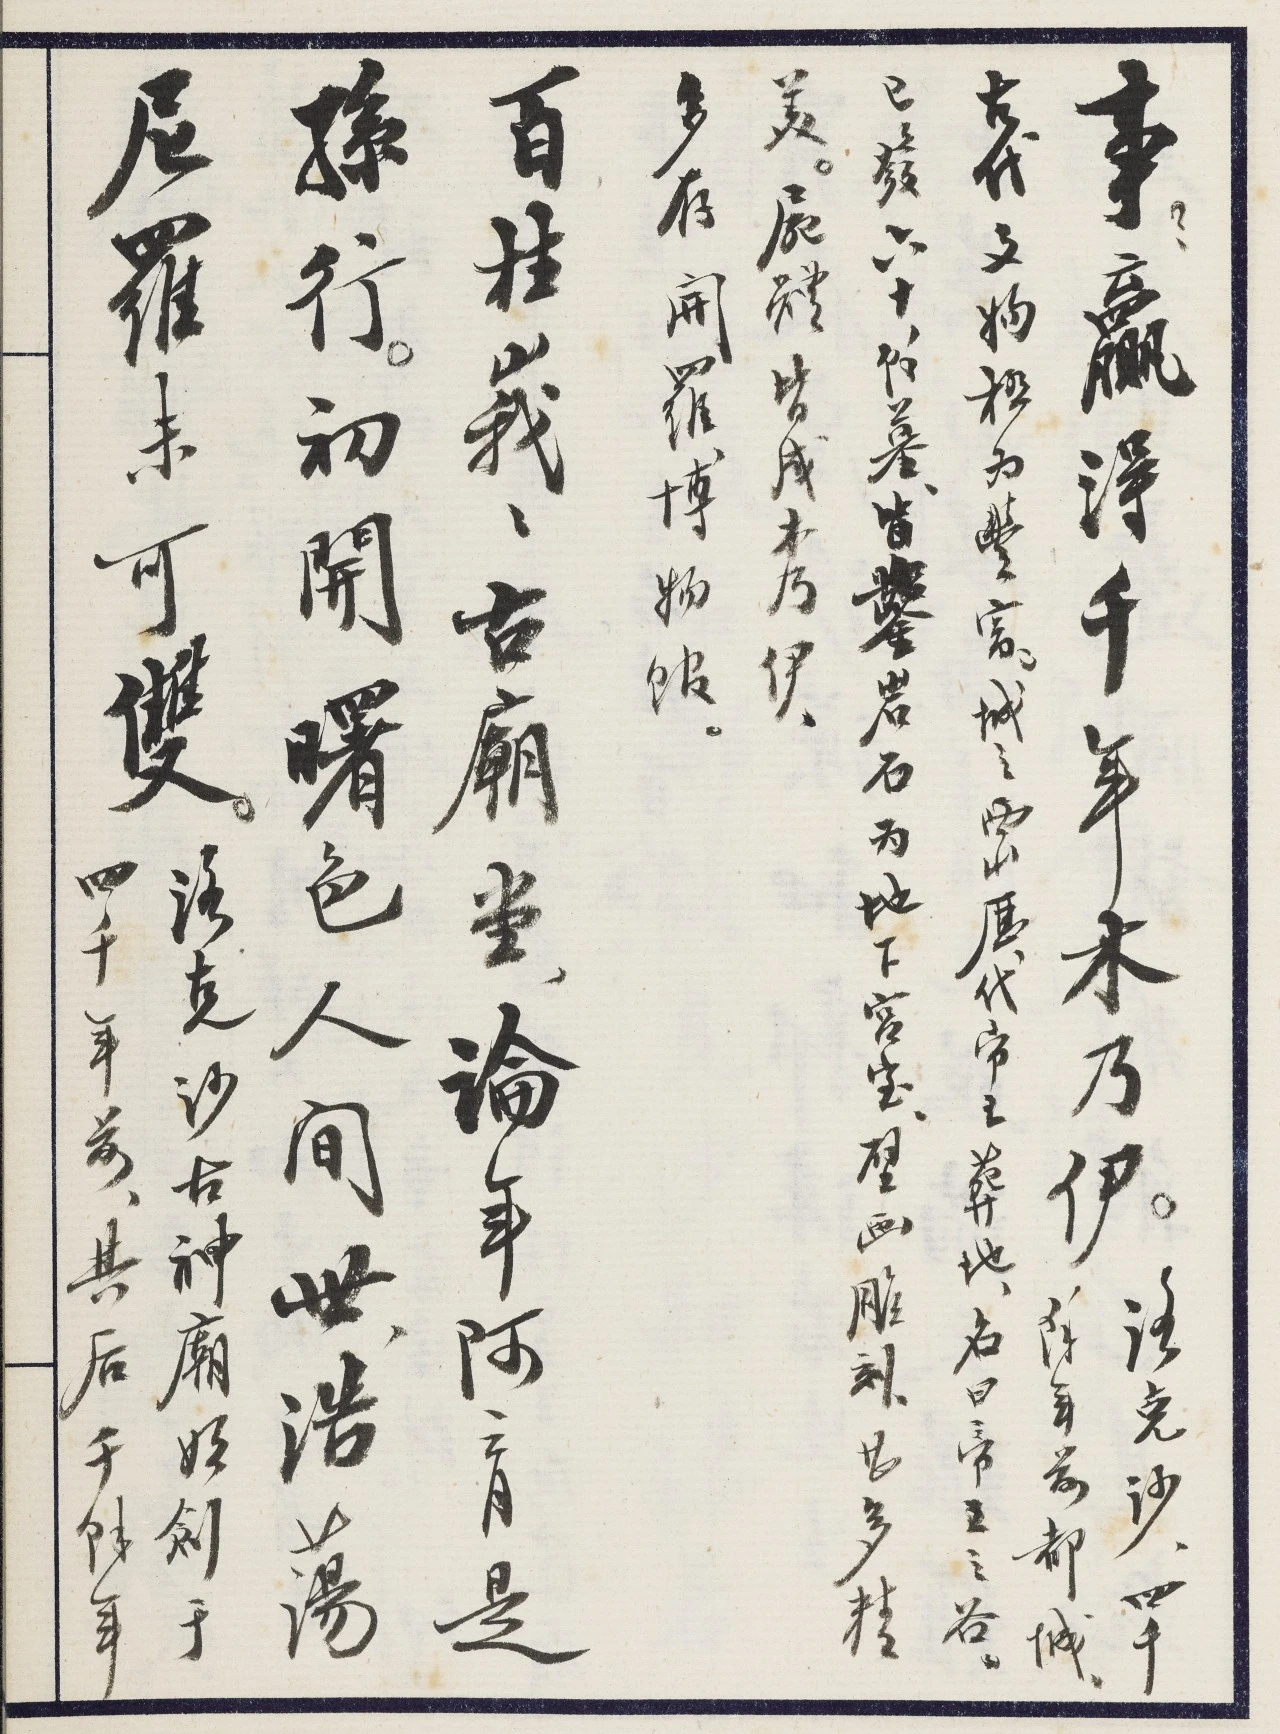 事、贏得千年木乃伊。洛克沙、四千
餘年前都城、
古代文物極为豐富。城之西山歷代帝王葬地、名曰帝王之谷。
已發六十餘墓、皆鑿岩石为地下宫室、壁画雕刻、甚多精
美。屍體皆成木乃伊、
多存開羅博物館。
百柱峩、古廟堂、論年阿育是
孫行。初開曙色人間世、浩蕩
尼羅未可雙。洛克沙古神廟始創于
四千年前、其后千餘年